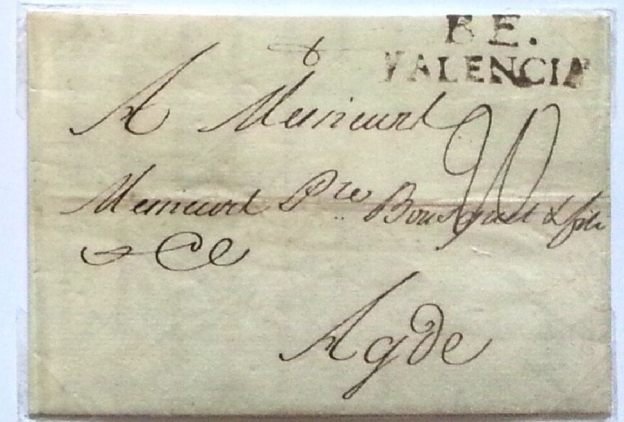 B E.
VALENCIA
A Messieurs
Messieurs Pre Bousquet & fils
& Ce
Agde